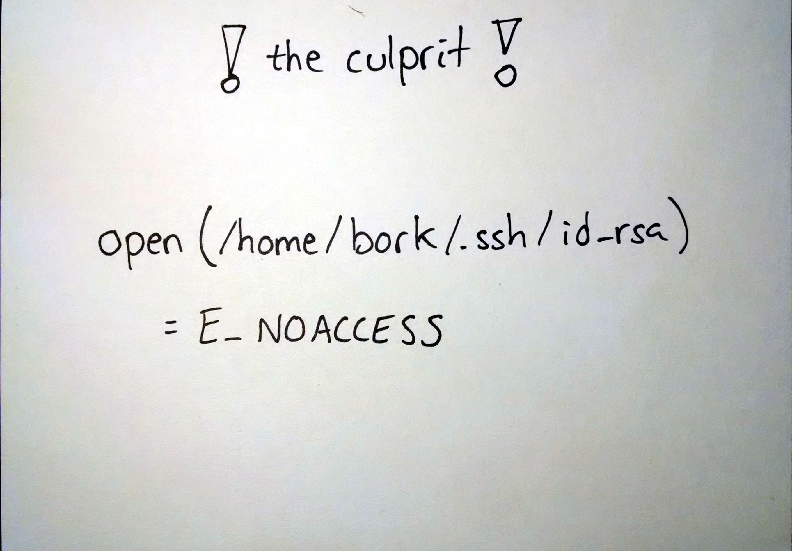 ! the culprit !
open (/home/bork/.ssh/id_rsa)
= E_ NOACCESS